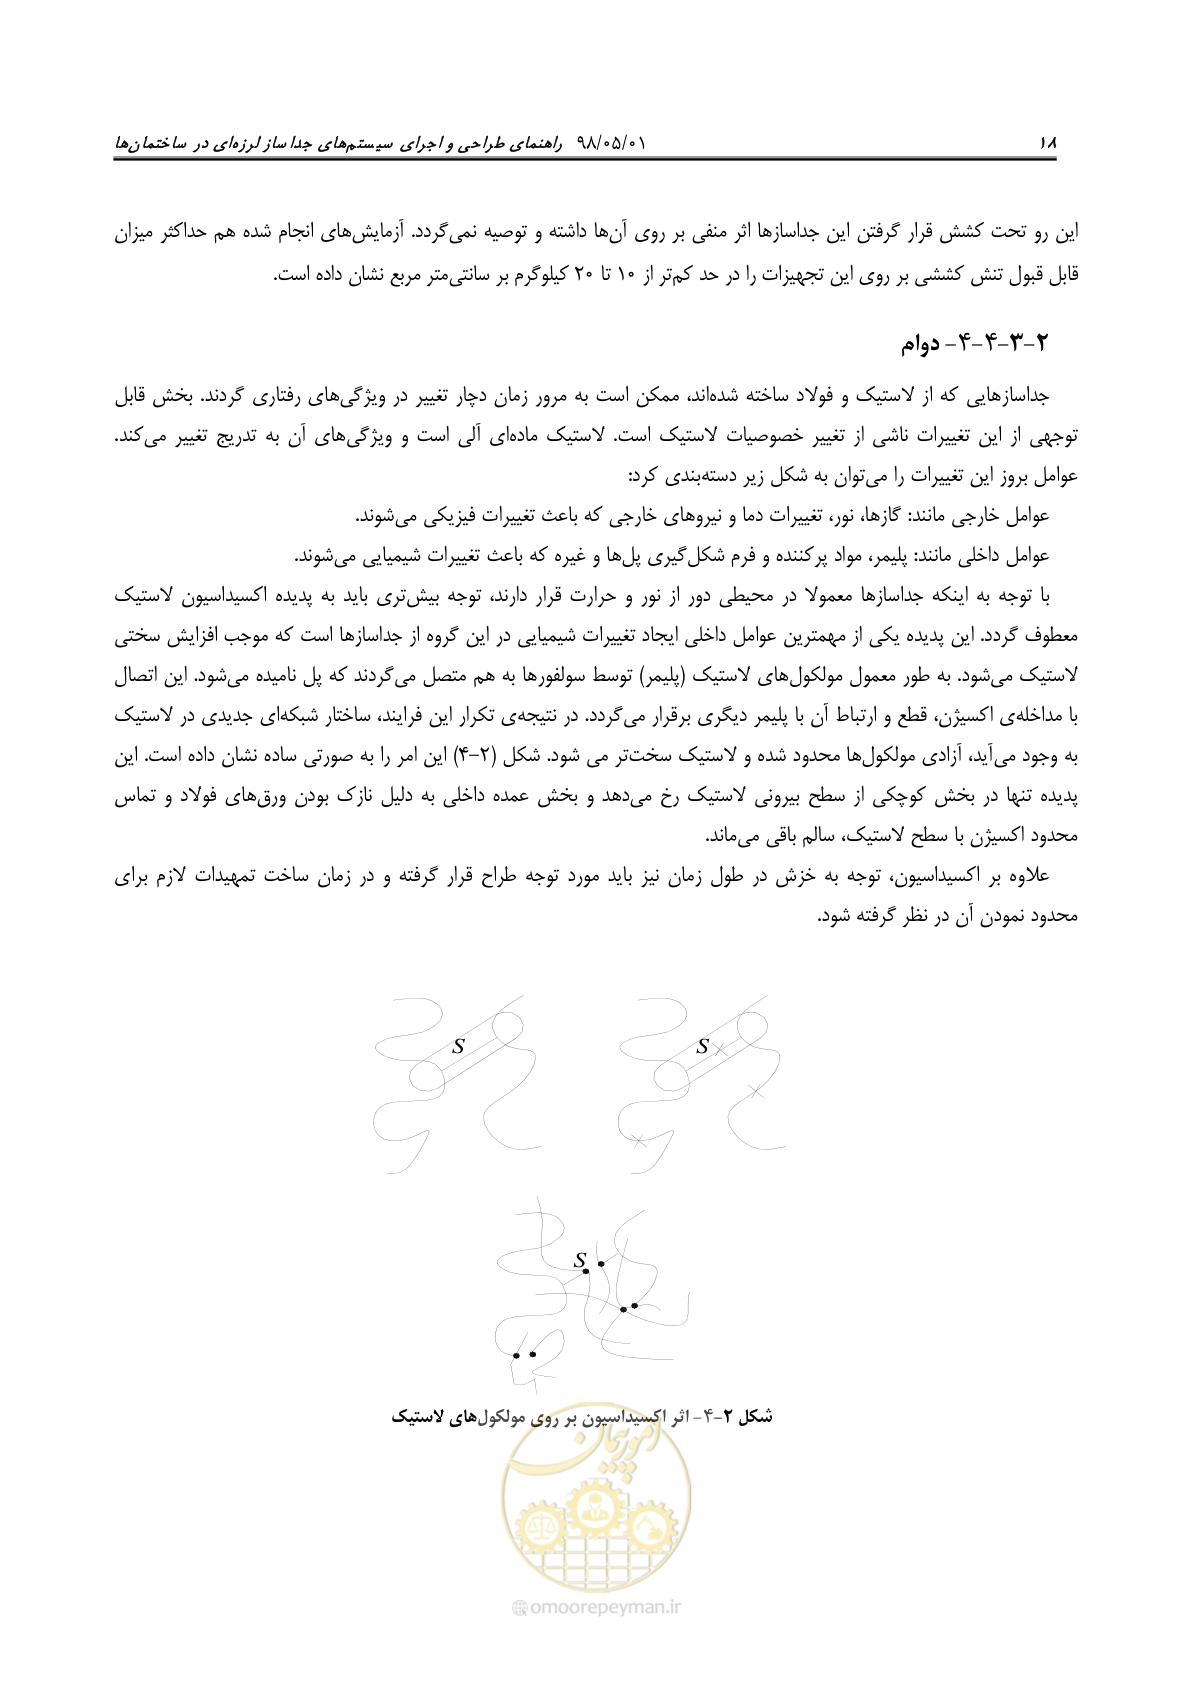 ۱۸ ۹۸/۰۵/۰۱ راهنمای طراحی و اجرای سیستم‌های جداساز لرزه‌ای در ساختمان‌ها
این رو تحت کشش قرار گرفتن این جداسازها اثر منفی بر روی آن‌ها داشته و توصیه نمی‌گردد. آزمایش‌های انجام شده هم حداکثر میزان
قابل قبول تنش کششی بر روی این تجهیزات را در حد کم‌تر از ۱۰ تا ۲۰ کیلوگرم بر سانتی‌متر مربع نشان داده است.
۲-۳-۴-۴- دوام
جداسازهایی که از لاستیک و فولاد ساخته شده‌اند، ممکن است به مرور زمان دچار تغییر در ویژگی‌های رفتاری گردند. بخش قابل
توجهی از این تغییرات ناشی از تغییر خصوصیات لاستیک است. لاستیک ماده‌ای آلی است و ویژگی‌های آن به تدریج تغییر می‌کند.
عوامل بروز این تغییرات را می‌توان به شکل زیر دسته‌بندی کرد:
عوامل خارجی مانند: گازها، نور، تغییرات دما و نیروهای خارجی که باعث تغییرات فیزیکی می‌شوند.
عوامل داخلی مانند: پلیمر، مواد پرکننده و فرم شکل‌گیری پل‌ها و غیره که باعث تغییرات شیمیایی می‌شوند.
با توجه به اینکه جداسازها معمولا در محیطی دور از نور و حرارت قرار دارند، توجه بیش‌تری باید به پدیده اکسیداسیون لاستیک
معطوف گردد. این پدیده یکی از مهمترین عوامل داخلی ایجاد تغییرات شیمیایی در این گروه از جداسازها است که موجب افزایش سختی
لاستیک می‌شود. به طور معمول مولکول‌های لاستیک (پلیمر) توسط سولفورها به هم متصل می‌گردند که پل نامیده می‌شود. این اتصال
با مداخله‌ی اکسیژن، قطع و ارتباط آن با پلیمر دیگری برقرار می‌گردد. در نتیجه‌ی تکرار این فرایند، ساختار شبکه‌ای جدیدی در لاستیک
به وجود می‌آید، آزادی مولکول‌ها محدود شده و لاستیک سخت‌تر می شود. شکل (۲-۴) این امر را به صورتی ساده نشان داده است. این
پدیده تنها در بخش کوچکی از سطح بیرونی لاستیک رخ می‌دهد و بخش عمده داخلی به دلیل نازک بودن ورق‌های فولاد و تماس
محدود اکسیژن با سطح لاستیک، سالم باقی می‌ماند.
علاوه بر اکسیداسیون، توجه به خزش در طول زمان نیز باید مورد توجه طراح قرار گرفته و در زمان ساخت تمهیدات لازم برای
محدود نمودن آن در نظر گرفته شود.
S
S
S
شکل ۲-۴- اثر اکسیداسیون بر روی مولکول‌های لاستیک
امور پیمان
omoorepeyman.ir